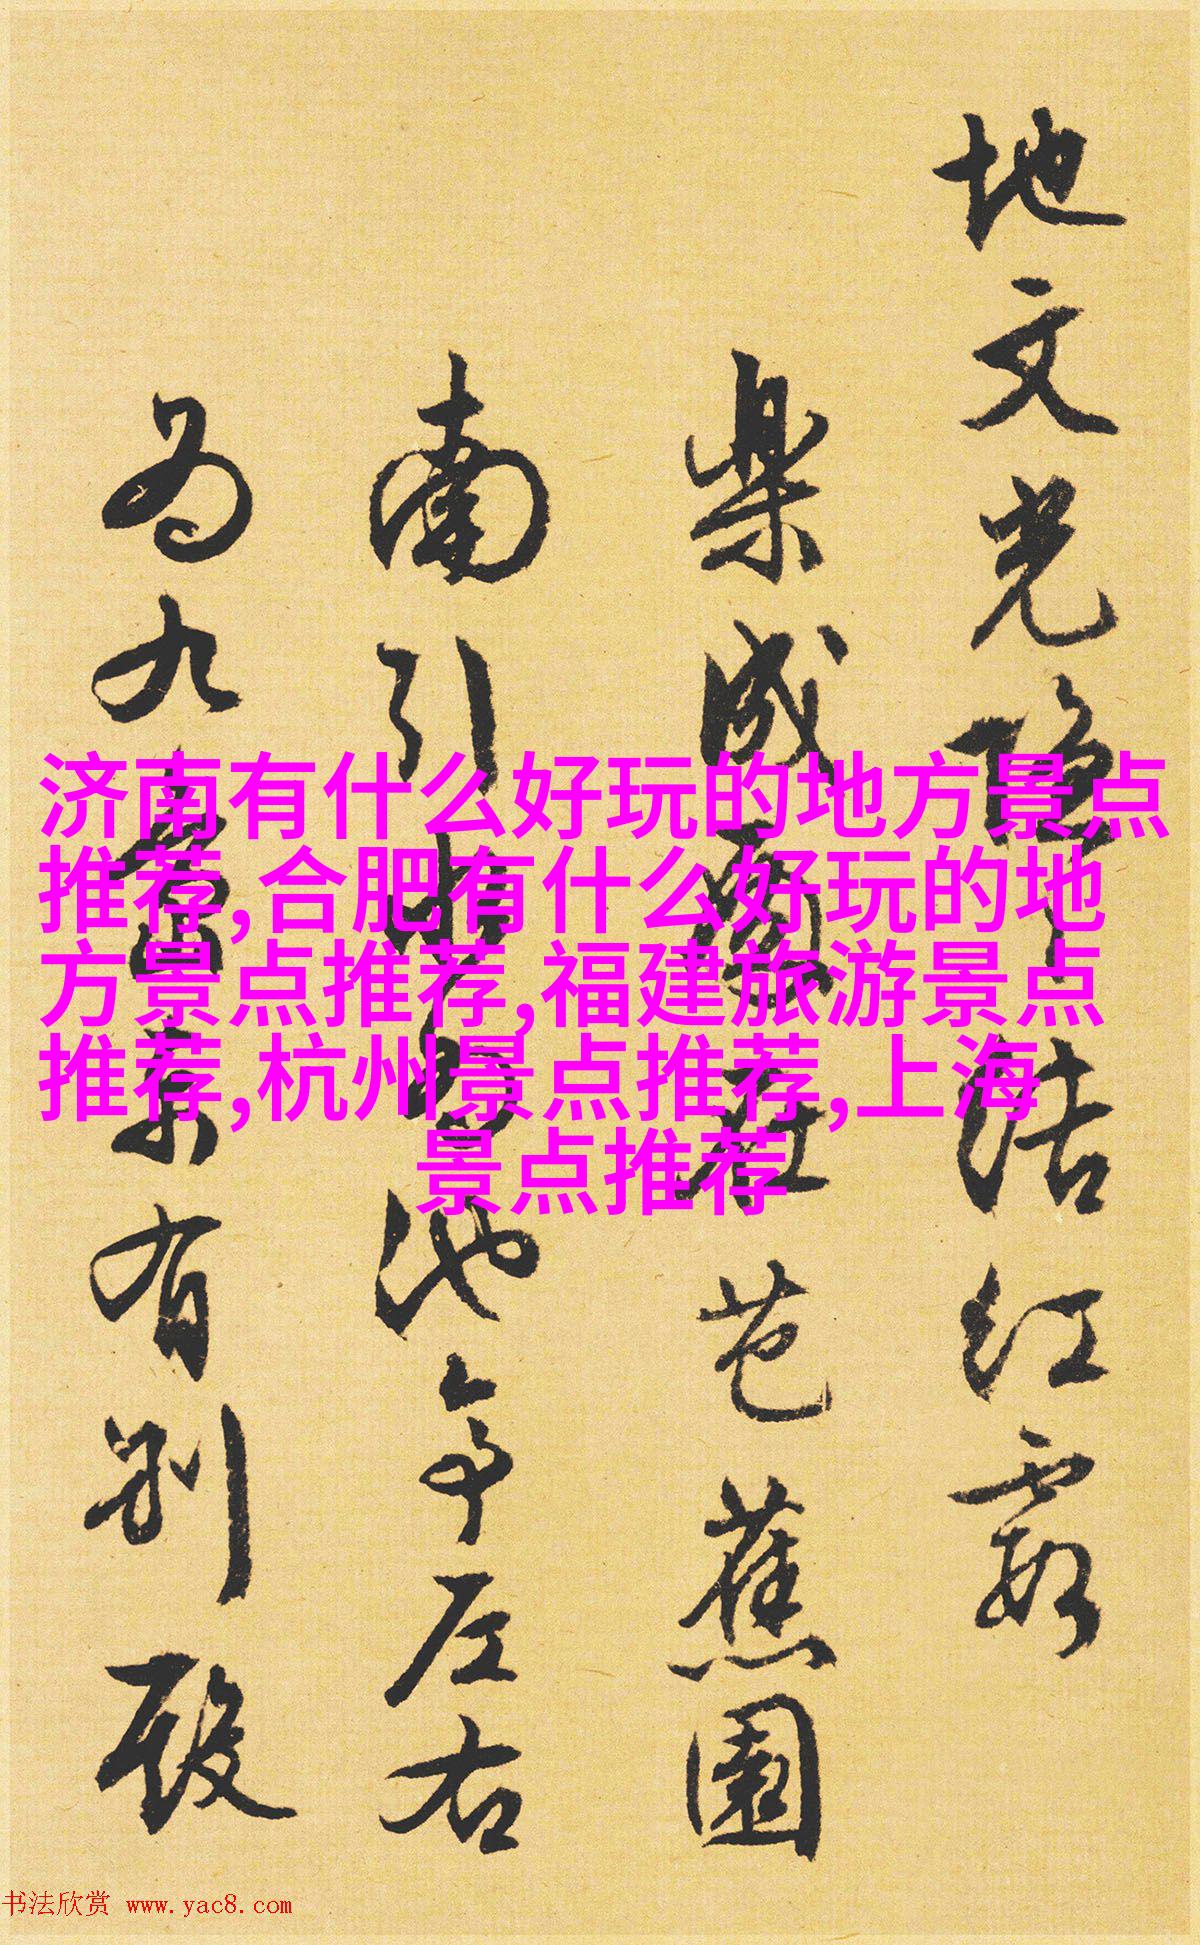 地文光隐下结红霞
乐成
芭蕉园
南引
池亭左右
为九
有别殿
济南有什么好玩的地方景点
推荐,合肥有什么好玩的地
方景点推荐,福建旅游景点
推荐,杭州景点推荐,上海
景点推荐
书法欣赏 www.yac8.com